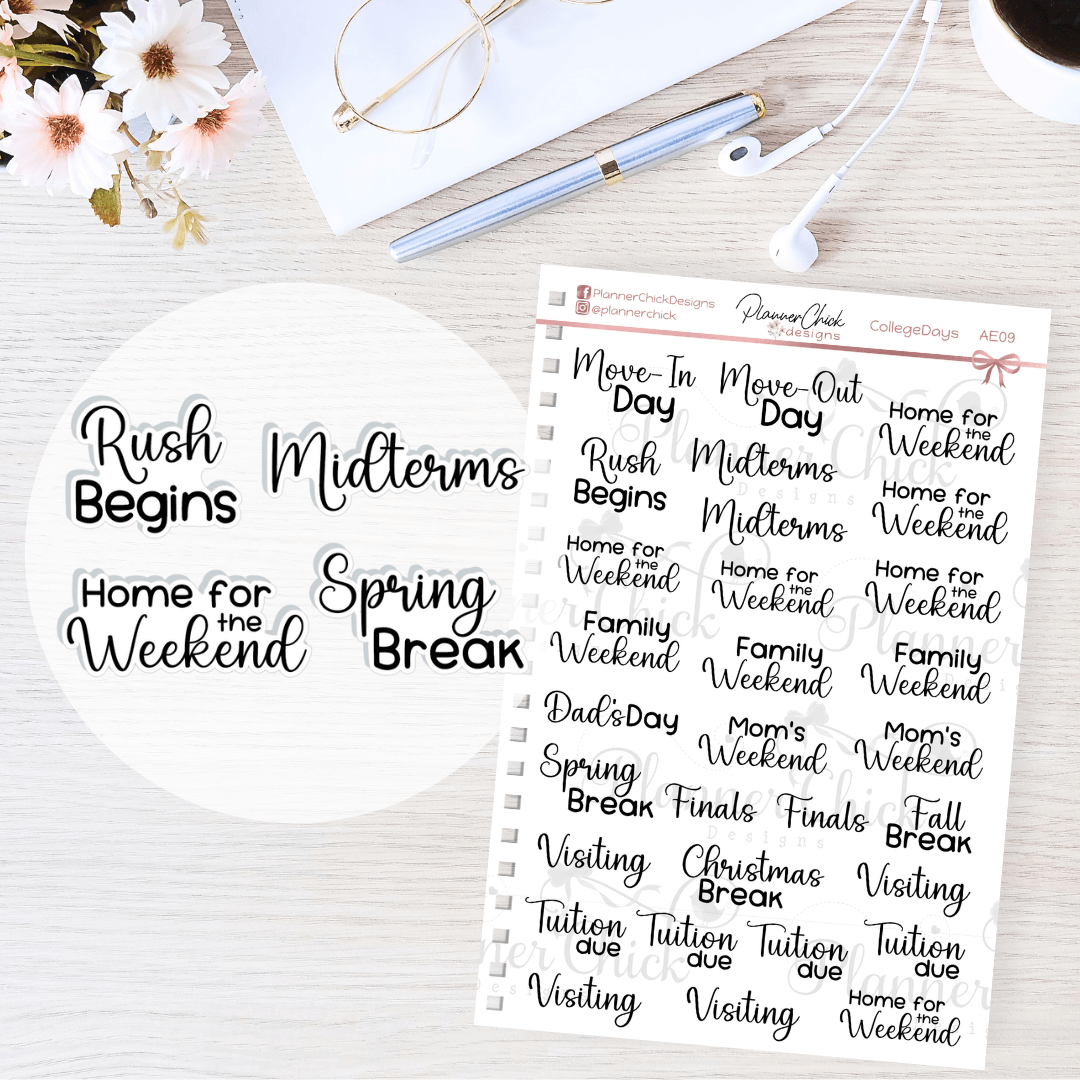 PlannerChickDesigns
@plannerchick
PlannerChick
designs
CollegeDays AE09
Rush
Begins
Midterms
Home for
the
Weekend
Spring
Break
Move-In
Day
Move-Out
Day
Home for
the
Weekend
Rush
Begins
Midterms
Midterms
Home for
the
Weekend
Home for
the
Weekend
Home for
the
Weekend
Home for
the
Weekend
Family
Weekend
Family
Weekend
Family
Weekend
Dad'sDay
Mom's
Weekend
Mom's
Weekend
Spring
Break
Finals
Finals
Fall
Break
Visiting
Christmas
Break
Visiting
Tuition
due
Tuition
due
Tuition
due
Tuition
due
Visiting
Visiting
Home for
the
Weekend
Planner Chick
Designs